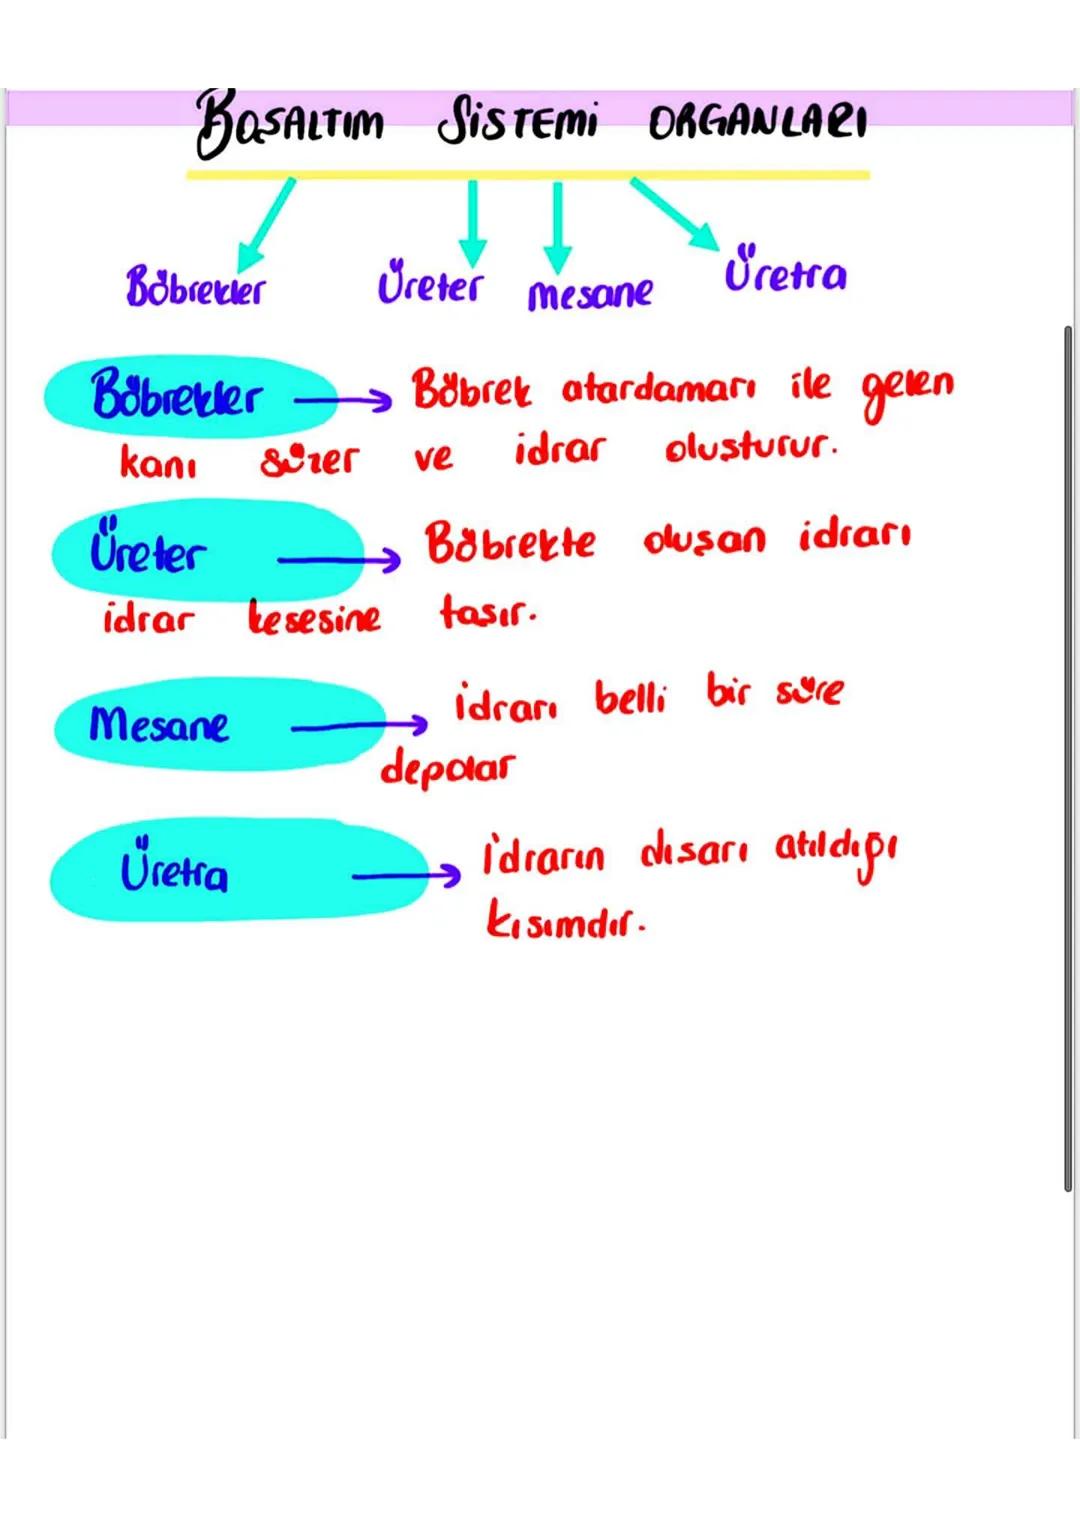 BOŞALTIM SİSTEMİ ORGANLARI
Böbrekler Üreter mesane Üretra
Böbrekler → Böbrek atardamarı ile gelen
kanı süzer ve idrar oluşturur.
Üreter → Böbrekte oluşan idrarı
idrar kesesine taşır.
Mesane → İdrarı belli bir süre
depolar
Üretra → İdrarın dışarı atıldığı
kısımdır.